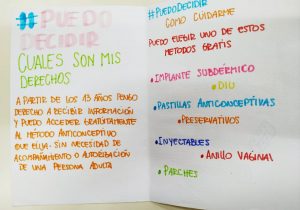 #PUEDO
DECIDIR
CUALES SON MIS
DERECHOS
A PARTIR DE LOS 13 AÑOS TENGO
DERECHO A RECIBIR INFORMACIÓN
Y PUEDO ACCEDER GRATUITAMENTE
AL MÉTODO ANTICONCEPTIVO
QUE ELIJA. SIN NECESIDAD DE
ACOMPAÑAMIENTO O AUTORIZACIÓN
DE UNA PERSONA ADULTA
#PUEDODECIDIR
COMO CUIDARME
PUEDO ELEGIR UNO DE ESTOS
METODOS GRATIS
•IMPLANTE SUBDÉRMICO
•DIU
•PASTILLAS ANTICONCEPTIVAS
•PRESERVATIVOS
•INYECTABLES
•ANILLO VAGINAL
•PARCHES